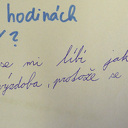 hodinách
?
se mi líbí jak
výzdoba, protože se